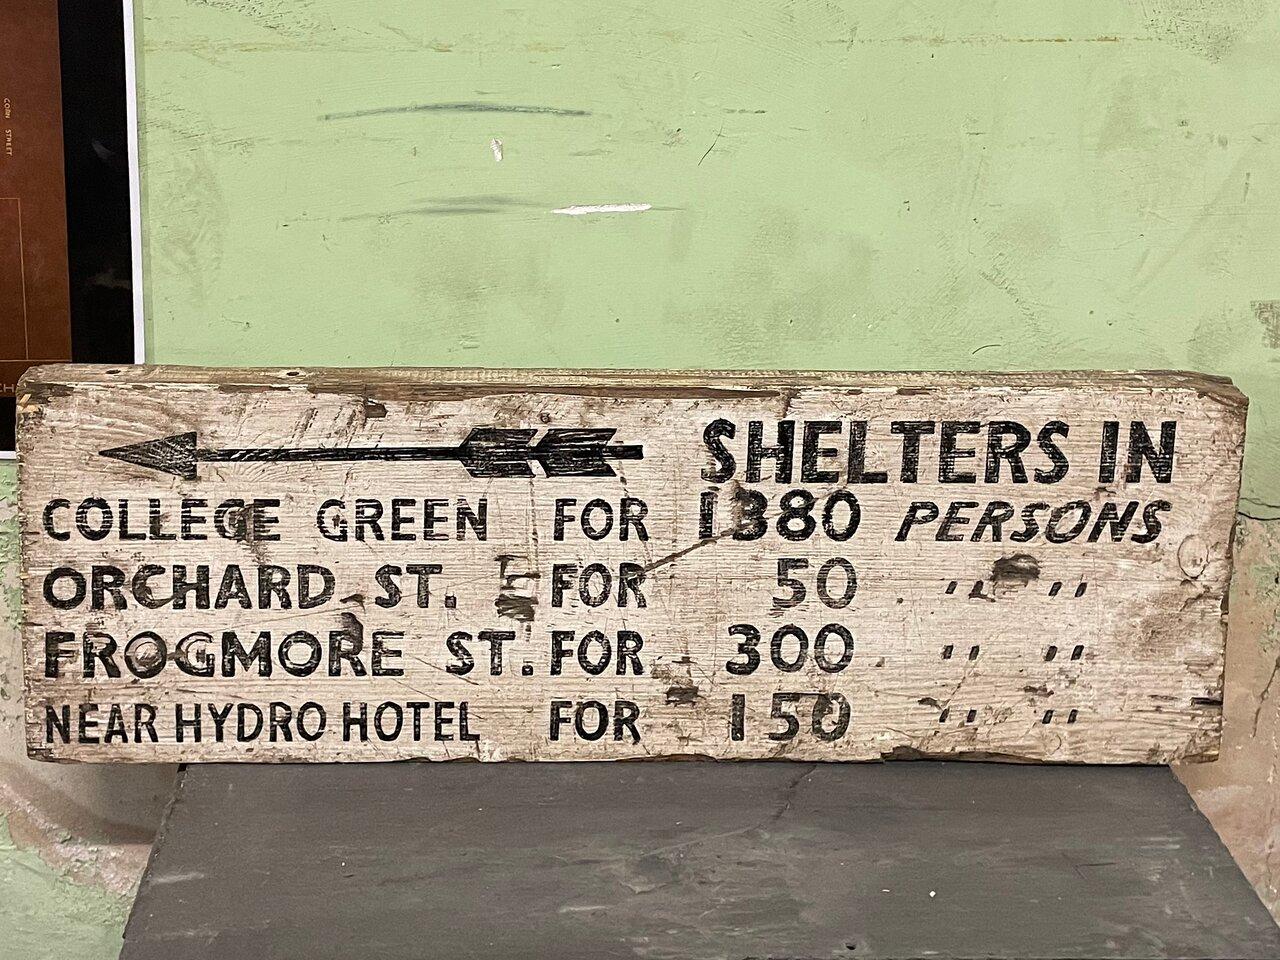 CORN STREET
SHELTERS IN
COLLEGE GREEN FOR 1380 PERSONS
ORCHARD ST. FOR 50 " "
FROGMORE ST. FOR 300 " "
NEAR HYDRO HOTEL FOR 150 " "